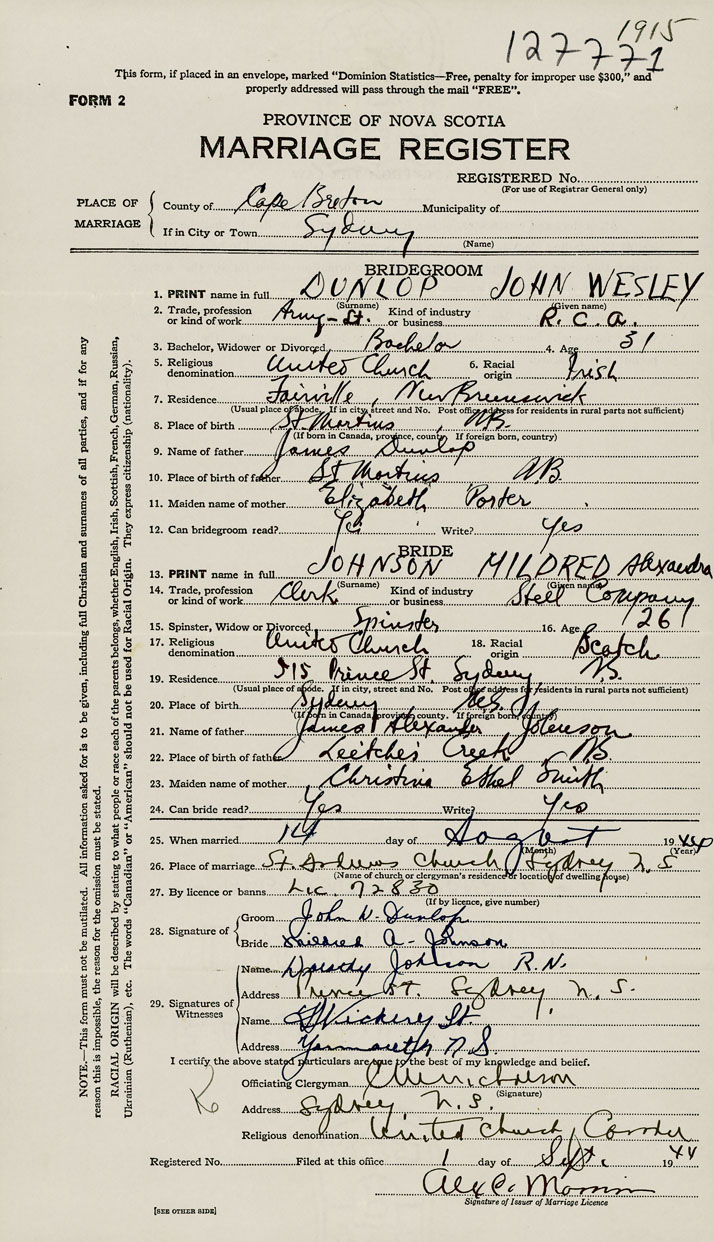 1915
127771
This form, if placed in an envelope, marked "Dominion Statistics—Free, penalty for improper use $300," and
properly addressed will pass through the mail "FREE".
FORM 2
PROVINCE OF NOVA SCOTIA
MARRIAGE REGISTER
REGISTERED No.
(For use of Registrar General only)
PLACE OF MARRIAGE
County of Cape Breton Municipality of
If in City or Town Sydney
(Name)
BRIDEGROOM
1. PRINT name in full DUNLOP JOHN WESLEY
(Surname) (Given name)
2. Trade, profession or kind of work Army - Lt. Kind of industry or business R.C.A.
3. Bachelor, Widower or Divorced Bachelor 4. Age 31
5. Religious denomination United Church 6. Racial origin Irish
7. Residence Fairville, New Brunswick
(Usual place of abode. If in city, street and No. Post office address for residents in rural parts not sufficient)
8. Place of birth St Martins, N.B.
(If born in Canada, province, county. If foreign born, country)
9. Name of father James Dunlop
10. Place of birth of father St Martins N.B.
11. Maiden name of mother Elizabeth Porter
12. Can bridegroom read? Yes Write? Yes
BRIDE
13. PRINT name in full JOHNSON MILDRED Alexandra
(Surname) (Given name)
14. Trade, profession or kind of work Clerk Kind of industry or business Steel Company
15. Spinster, Widow or Divorced Spinster 16. Age 26
17. Religious denomination United Church 18. Racial origin Scotch
19. Residence 515 Prince St. Sydney, N.S.
(Usual place of abode. If in city, street and No. Post office address for residents in rural parts not sufficient)
20. Place of birth Sydney N.S.
(If born in Canada, province county. If foreign born, country)
21. Name of father James Alexander Johnson
22. Place of birth of father Leitches Creek, N.S.
23. Maiden name of mother Christina Ethel Smith
24. Can bride read? Yes Write? Yes
25. When married 14 day of August 19 44
(Month) (Year)
26. Place of marriage St. Andrews Church, Sydney N.S
(Name of church or clergyman's residence or location of dwelling house)
27. By licence or banns Lic. 72830
(If by licence, give number)
28. Signature of
Groom John W. Dunlop
Bride Mildred A. Johnson
29. Signatures of Witnesses
Name Dorothy Johnson R.N.
Address Prince St. Sydney N.S.
Name Vickery Lt.
Address Yarmouth N.S.
I certify the above stated particulars are true to the best of my knowledge and belief.
Officiating Clergyman
(Signature)
Address Sydney N.S.
Religious denomination United Church, Canada
Registered No. Filed at this office 1 day of Sept. 19 44
Alex C.
Signature of Issuer of Marriage Licence
[SEE OTHER SIDE]
NOTE.—This form must not be mutilated. All information asked for is to be given, including full Christian and surnames of all parties, and if for any
reason this is impossible, the reason for the omission must be stated.
RACIAL ORIGIN will be described by stating to what people or race each of the parents belongs, whether English, Irish, Scottish, French, German, Russian,
Ukrainian (Ruthenian), etc. The words "Canadian" or "American" should not be used for Racial Origin. They express citizenship (nationality).